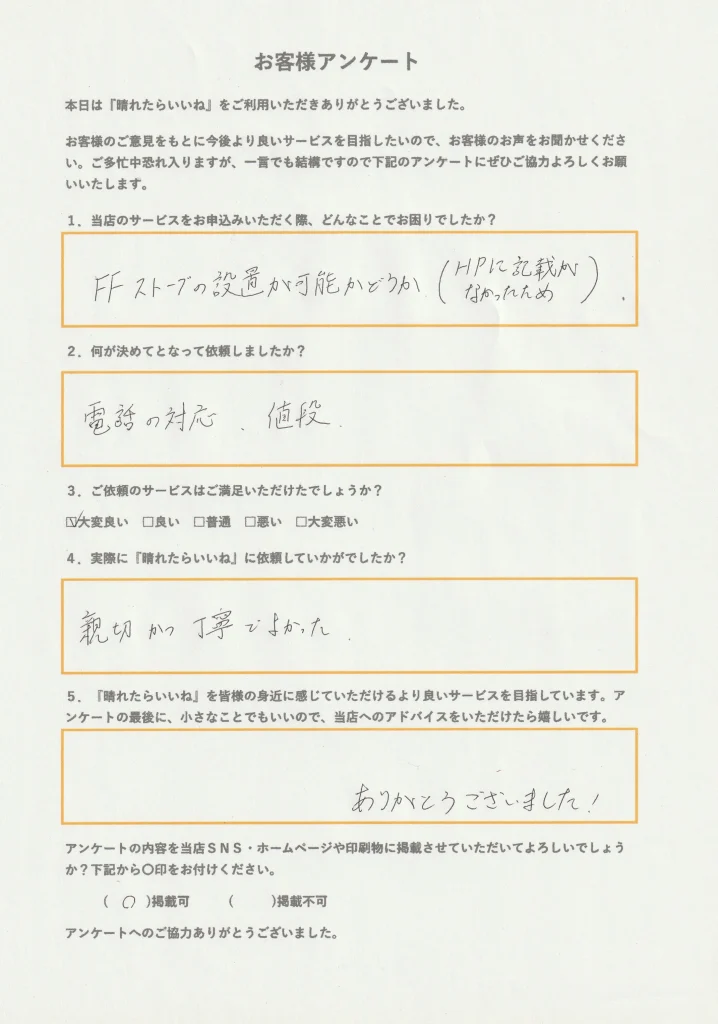 お客様アンケート
本日は『晴れたらいいね』をご利用いただきありがとうございました。
お客様のご意見をもとに今後より良いサービスを目指したいので、お客様のお声をお聞かせくださ
い。ご多忙中恐れ入りますが、一言でも結構ですので下記のアンケートにぜひご協力よろしくお願
いいたします。
１．当店のサービスをお申込みいただく際、どんなことでお困りでしたか？
FFストーブの設置が可能かどうか（HPに記載が
なかったため）．
２．何が決めてとなって依頼しましたか？
電話の対応、値段．
３．ご依頼のサービスはご満足いただけたでしょうか？
☑大変良い　□良い　□普通　□悪い　□大変悪い
４．実際に『晴れたらいいね』に依頼していかがでしたか？
親切かつ丁寧でよかった．
５．『晴れたらいいね』を皆様の身近に感じていただけるより良いサービスを目指しています。ア
ンケートの最後に、小さなことでもいいので、当店へのアドバイスをいただけたら嬉しいです。
ありがとうございました！
アンケートの内容を当店ＳＮＳ・ホームページや印刷物に掲載させていただいてよろしいでしょう
か？下記から〇印をお付けください。
（　〇　）掲載可　　（　　　）掲載不可
アンケートへのご協力ありがとうございました。